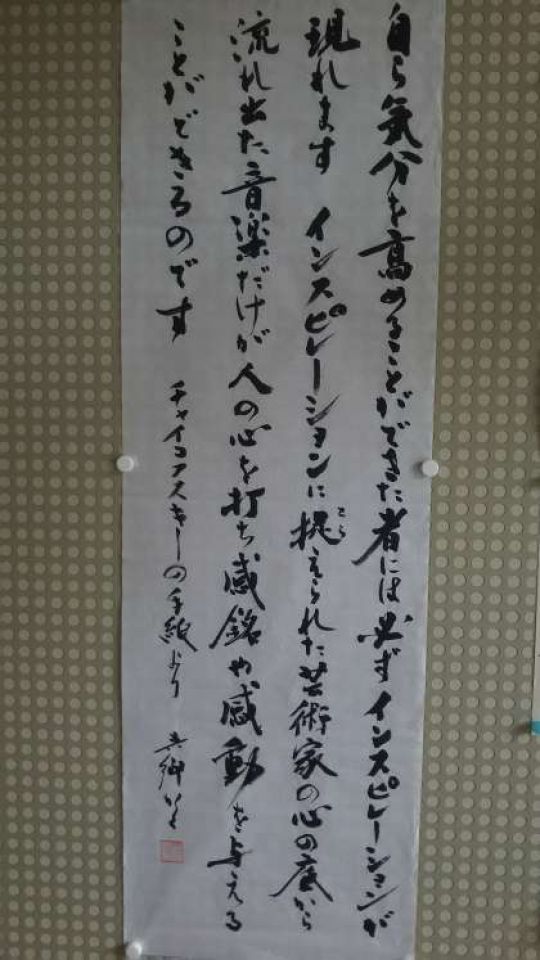 自ら気分を高めることができた者には必ずインスピレーションが
現れます インスピレーションに捉えられた芸術家の心の底から
とら
流れ出た音楽だけが人の心を打ち感銘や感動を与える
ことができるのです チャイコフスキーの手紙より